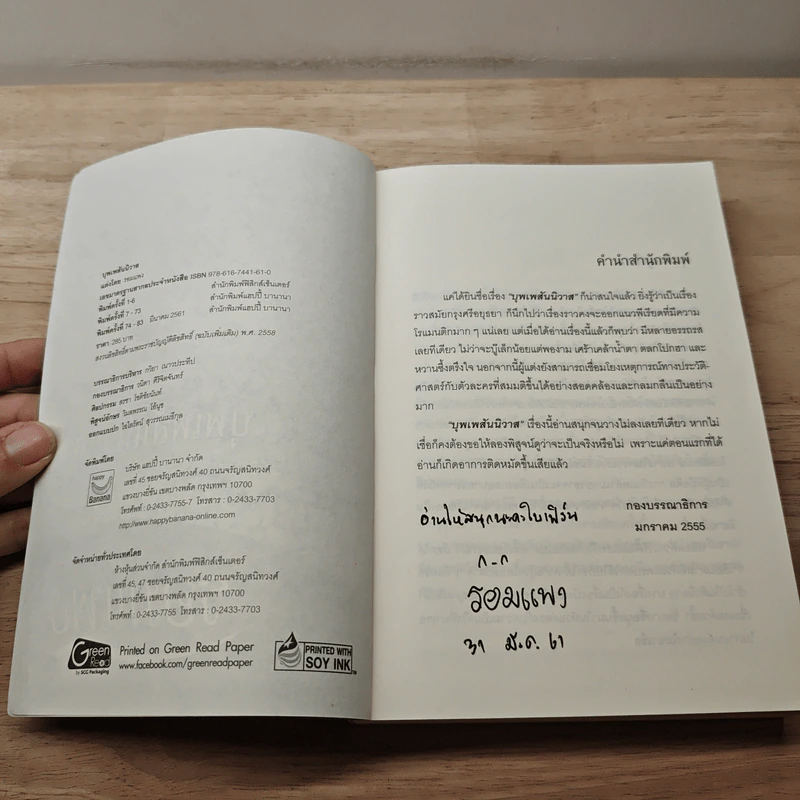 บุพเพสันนิวาส
แต่งโดย รอมแพง
เลขมาตรฐานสากลประจำหนังสือ ISBN 978-616-7441-61-0
พิมพ์ครั้งที่ 1-6 สำนักพิมพ์ฟิสิกส์เซ็นเตอร์
พิมพ์ครั้งที่ 7 - 73 สำนักพิมพ์แฮปปี้ บานานา
พิมพ์ครั้งที่ 74 - 83 มีนาคม 2561 สำนักพิมพ์แฮปปี้ บานานา
ราคา 285 บาท
สงวนลิขสิทธิ์ตามพระราชบัญญัติลิขสิทธิ์ (ฉบับเพิ่มเติม) พ.ศ. 2558
บรรณาธิการบริหาร กวิยา เนาวประทีป
กองบรรณาธิการ
ศิลปกรรม
พิสูจน์อักษร วิมลพรรณ ไข้นุช
ออกแบบปก ไอไตรัตน์ สุวรรณเมธีกุล
จัดพิมพ์โดย
happy
Banana
บริษัท แฮปปี้ บานานา จำกัด
เลขที่ 45 ซอยจรัญสนิทวงศ์ 40 ถนนจรัญสนิทวงศ์
แขวงบางยี่ขัน เขตบางพลัด กรุงเทพฯ 10700
โทรศัพท์ : 0-2433-7755-7 โทรสาร : 0-2433-7703
http://www.happybanana-online.com
จัดจำหน่ายทั่วประเทศโดย
ห้างหุ้นส่วนจำกัด สำนักพิมพ์ฟิสิกส์เซ็นเตอร์
เลขที่ 45, 47 ซอยจรัญสนิทวงศ์ 40 ถนนจรัญสนิทวงศ์
แขวงบางยี่ขัน เขตบางพลัด กรุงเทพฯ 10700
โทรศัพท์ : 0-2433-7755 โทรสาร : 0-2433-7703
Green
Read
by SCG Packaging
Printed on Green Read Paper
www.facebook.com/greenreadpaper
PRINTED WITH
SOY INK
คำนำสำนักพิมพ์
แค่ได้ยินชื่อเรื่อง "บุพเพสันนิวาส" ก็น่าสนใจแล้ว ยิ่งรู้ว่าเป็นเรื่อง
ราวสมัยกรุงศรีอยุธยา ก็นึกไปว่าเรื่องราวคงจะออกแนวพีเรียดที่มีความ
โรแมนติกมาก ๆ แน่เลย แต่เมื่อได้อ่านเรื่องนี้แล้วก็พบว่า มีหลายอรรถรส
เลยทีเดียว ไม่ว่าจะบู๊เล็กน้อยแต่พองาม เศร้าเคล้าน้ำตา ตลกโปกฮา และ
หวานซึ้งตรึงใจ นอกจากนี้ผู้แต่งยังสามารถเชื่อมโยงเหตุการณ์ทางประวัติ-
ศาสตร์กับตัวละครที่สมมติขึ้นได้อย่างสอดคล้องและกลมกลืนเป็นอย่าง
มาก
"บุพเพสันนิวาส" เรื่องนี้อ่านสนุกจนวางไม่ลงเลยทีเดียว หากไม่
เชื่อก็คงต้องขอให้ลองพิสูจน์ดูว่าจะเป็นจริงหรือไม่ เพราะแค่ตอนแรกที่ได้
อ่านก็เกิดอาการติดหมัดขึ้นเสียแล้ว
กองบรรณาธิการ
มกราคม 2555
อ่านให้สนุกนะคะใบเฟิร์น
ก-ก
รอมแพง
31 มี.ค. 61